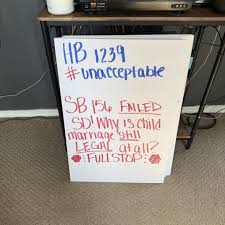 HB 1239
#unacceptable
SB 156 FAILED
SD! Why is child
marriage still
LEGAL at all?
FULLSTOP